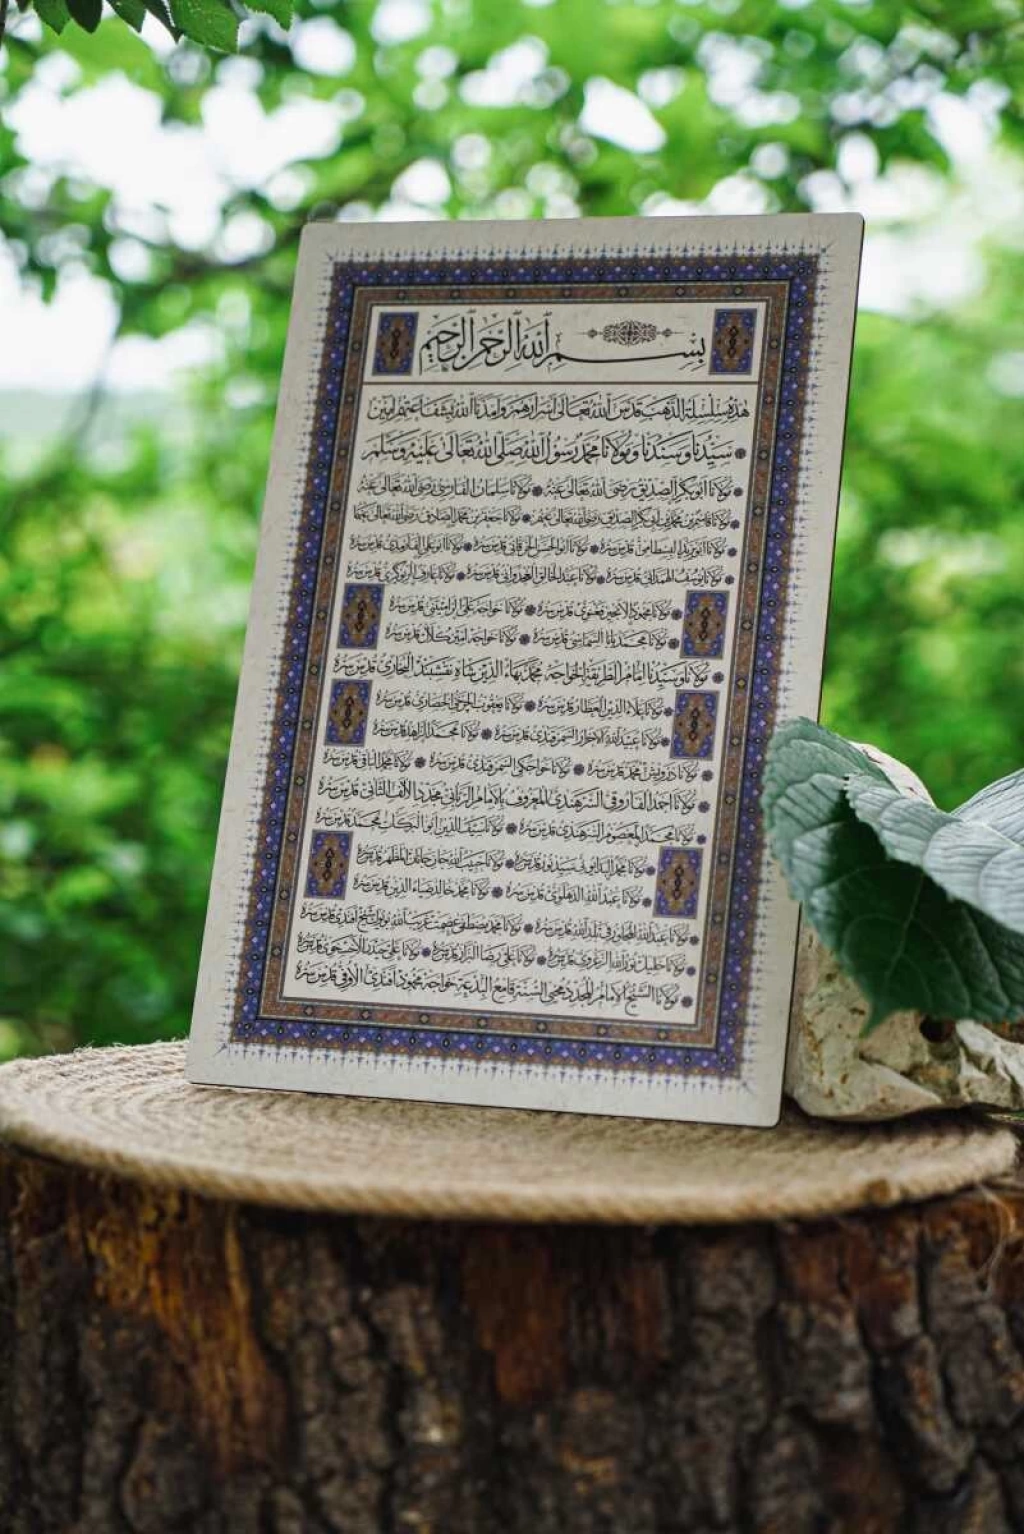 بِسْمِ اللهِ الرَّحْمٰنِ الرَّحِيْمِ
هٰذِهِ سِلْسِلَةُ الذَّهَبِ قَدَّسَ اللهُ تَعَالٰى اَسْرَارَهُمْ وَاَمَدَّنَا اللهُ بِشَفَاعَتِهِمْ اٰمِيْنَ
سَيِّدُنَا وَسَنَدُنَا وَمَوْلَانَا مُحَمَّدٌ رَسُوْلُ اللهِ صَلَّى اللهُ تَعَالٰى عَلَيْهِ وَسَلَّمَ
مَوْلَانَا اَبُوبَكْرٍ الصِّدِّيْقُ رَضِىَ اللهُ تَعَالٰى عَنْهُ ۞ مَوْلَانَا سَلْمَانُ الْفَارِسِىُّ رَضِىَ اللهُ تَعَالٰى عَنْهُ
مَوْلَانَا قَاسِمُ بْنُ مُحَمَّدِ بْنِ اَبِى بَكْرٍ الصِّدِّيْقِ رَضِىَ اللهُ تَعَالٰى عَنْهُمْ ۞ مَوْلَانَا جَعْفَرُ بْنُ مُحَمَّدٍ الصَّادِقُ رَضِىَ اللهُ تَعَالٰى عَنْهُمَا
مَوْلَانَا اَبُو يَزِيْدَ الْبِسْطَامِىُّ قُدِّسَ سِرُّهُ ۞ مَوْلَانَا اَبُو الْحَسَنِ الْخَرَقَانِىُّ قُدِّسَ سِرُّهُ ۞ مَوْلَانَا اَبُو عَلِىٍّ الْفَارْمَدِىُّ قُدِّسَ سِرُّهُ
مَوْلَانَا يُوسُفُ الْهَمَدَانِىُّ قُدِّسَ سِرُّهُ ۞ مَوْلَانَا عَبْدُ الْخَالِقِ الْغُجْدَوَانِىُّ قُدِّسَ سِرُّهُ ۞ مَوْلَانَا عَارِفُ الرِّيْوَكَرِىُّ قُدِّسَ سِرُّهُ
مَوْلَانَا مَحْمُودٌ الْاِنْجِيْرُ فَغْنَوِىُّ قُدِّسَ سِرُّهُ ۞ مَوْلَانَا خَوَاجَه عَلِىٌّ الرَّامِتَنِىُّ قُدِّسَ سِرُّهُ
مَوْلَانَا مُحَمَّدٌ بَابَا السَّمَّاسِىُّ قُدِّسَ سِرُّهُ ۞ مَوْلَانَا خَوَاجَه اَمِيْرُ كُلَالٍ قُدِّسَ سِرُّهُ
مَوْلَانَا وَسَيِّدُنَا اِمَامُ الطَّرِيْقَةِ الْخَوَاجَه مُحَمَّدٌ بَهَاءُ الدِّيْنِ شَاهِ نَقْشِبَنْدِ الْبُخَارِىُّ قُدِّسَ سِرُّهُ
مَوْلَانَا عَلَاءُ الدِّيْنِ الْعَطَّارُ قُدِّسَ سِرُّهُ ۞ مَوْلَانَا يَعْقُوبُ الْچَرْخِىُّ الْحِصَارِىُّ قُدِّسَ سِرُّهُ
مَوْلَانَا عُبَيْدُ اللهِ الْاَحْرَارُ السَّمَرْقَنْدِىُّ قُدِّسَ سِرُّهُ ۞ مَوْلَانَا مُحَمَّدٌ الزَّاهِدُ قُدِّسَ سِرُّهُ
مَوْلَانَا دَرْوِيْشْ مُحَمَّدٌ قُدِّسَ سِرُّهُ ۞ مَوْلَانَا خَوَاجَكِىُّ السَّمَرْقَنْدِىُّ قُدِّسَ سِرُّهُ ۞ مَوْلَانَا مُحَمَّدٌ الْبَاقِى قُدِّسَ سِرُّهُ
مَوْلَانَا اَحْمَدُ الْفَارُوقِىُّ السَّرْهَنْدِىُّ الْمَعْرُوفُ بِالْاِمَامِ الرَّبَّانِىِّ مُجَدِّدُ الْاَلْفِ الثَّانِى قُدِّسَ سِرُّهُ
مَوْلَانَا مُحَمَّدٌ الْمَعْصُومُ السَّرْهَنْدِىُّ قُدِّسَ سِرُّهُ ۞ مَوْلَانَا سَيْفُ الدِّيْنِ اَبُو الْبَرَكَاتِ مُحَمَّدٌ قُدِّسَ سِرُّهُ
مَوْلَانَا مُحَمَّدٌ الْبَدَايُوْنِىُّ سَيِّدُ نُورٍ قُدِّسَ سِرُّهُ ۞ مَوْلَانَا حَبِيْبُ اللهِ جَانِ جَانَانَ الْمَظْهَرُ قُدِّسَ سِرُّهُ
مَوْلَانَا عَبْدُ اللهِ الدَّهْلَوِىُّ قُدِّسَ سِرُّهُ ۞ مَوْلَانَا مُحَمَّدٌ خَالِدٌ ضِيَاءُ الدِّيْنِ قُدِّسَ سِرُّهُ
مَوْلَانَا عَبْدُ اللهِ الْمُجَاوِرُ فِى بَلَدِ اللهِ قُدِّسَ سِرُّهُ ۞ مَوْلَانَا مُحَمَّدٌ مُصْطَفٰى عِصْمَتْ غَرِيْبُ اللهِ شَيْخْ اَفَنْدِى قُدِّسَ سِرُّهُ
مَوْلَانَا خَلِيْلٌ نُورُ اللهِ الزَّغْرَوِىُّ قُدِّسَ سِرُّهُ ۞ مَوْلَانَا عَلِىٌّ رِضَا الْبَزَّازُ قُدِّسَ سِرُّهُ ۞ مَوْلَانَا عَلِىٌّ حَيْدَرُ الْاَخِسْخَوِىُّ قُدِّسَ سِرُّهُ
مَوْلَانَا الشَّيْخُ الْاِمَامُ الْمُجَدِّدُ مُحْيِى السُّنَّةِ قَامِعُ الْبِدْعَةِ خَوَاجَه مَحْمُودْ اَفَنْدِى الْاُوفِى قُدِّسَ سِرُّهُ